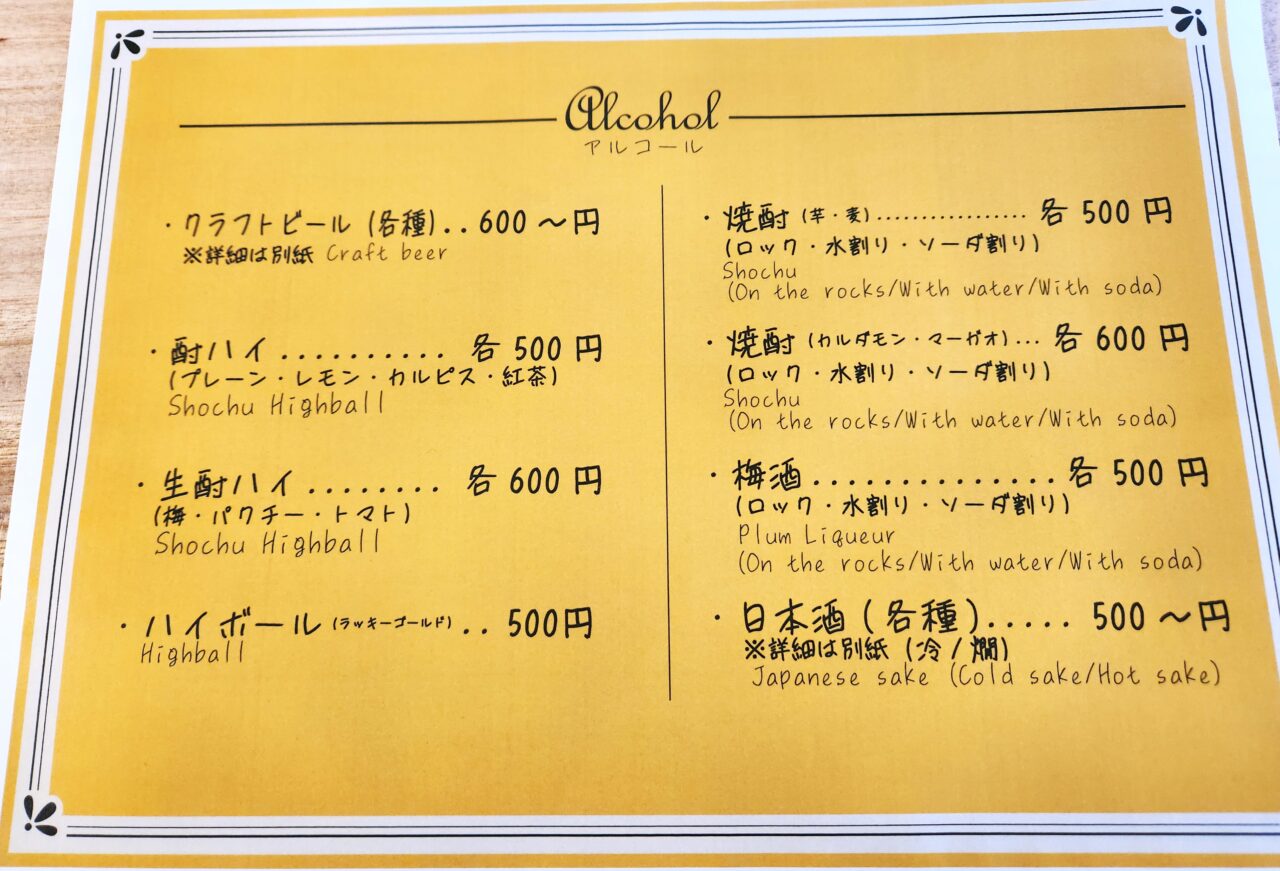 Alcohol
アルコール
・クラフトビール (各種)..600〜円
※詳細は別紙 Craft beer
・酎ハイ.......... 各 500 円
(プレーン・レモン・カルピス・紅茶)
Shochu Highball
・生酎ハイ........ 各 600 円
(梅・パクチー・トマト)
Shochu Highball
・ハイボール (ラッキーゴールド).. 500円
Highball
・焼酎 (芋・麦)................. 各 500 円
(ロック・水割り・ソーダ割り)
Shochu
(On the rocks/With water/With soda)
・焼酎 (カルダモン・マーガオ)... 各 600 円
(ロック・水割り・ソーダ割り)
Shochu
(On the rocks/With water/With soda)
・梅酒.............. 各 500 円
(ロック・水割り・ソーダ割り)
Plum Liqueur
(On the rocks/With water/With soda)
・日本酒 (各種)..... 500 〜円
※詳細は別紙 (冷/燗)
Japanese sake (Cold sake/Hot sake)